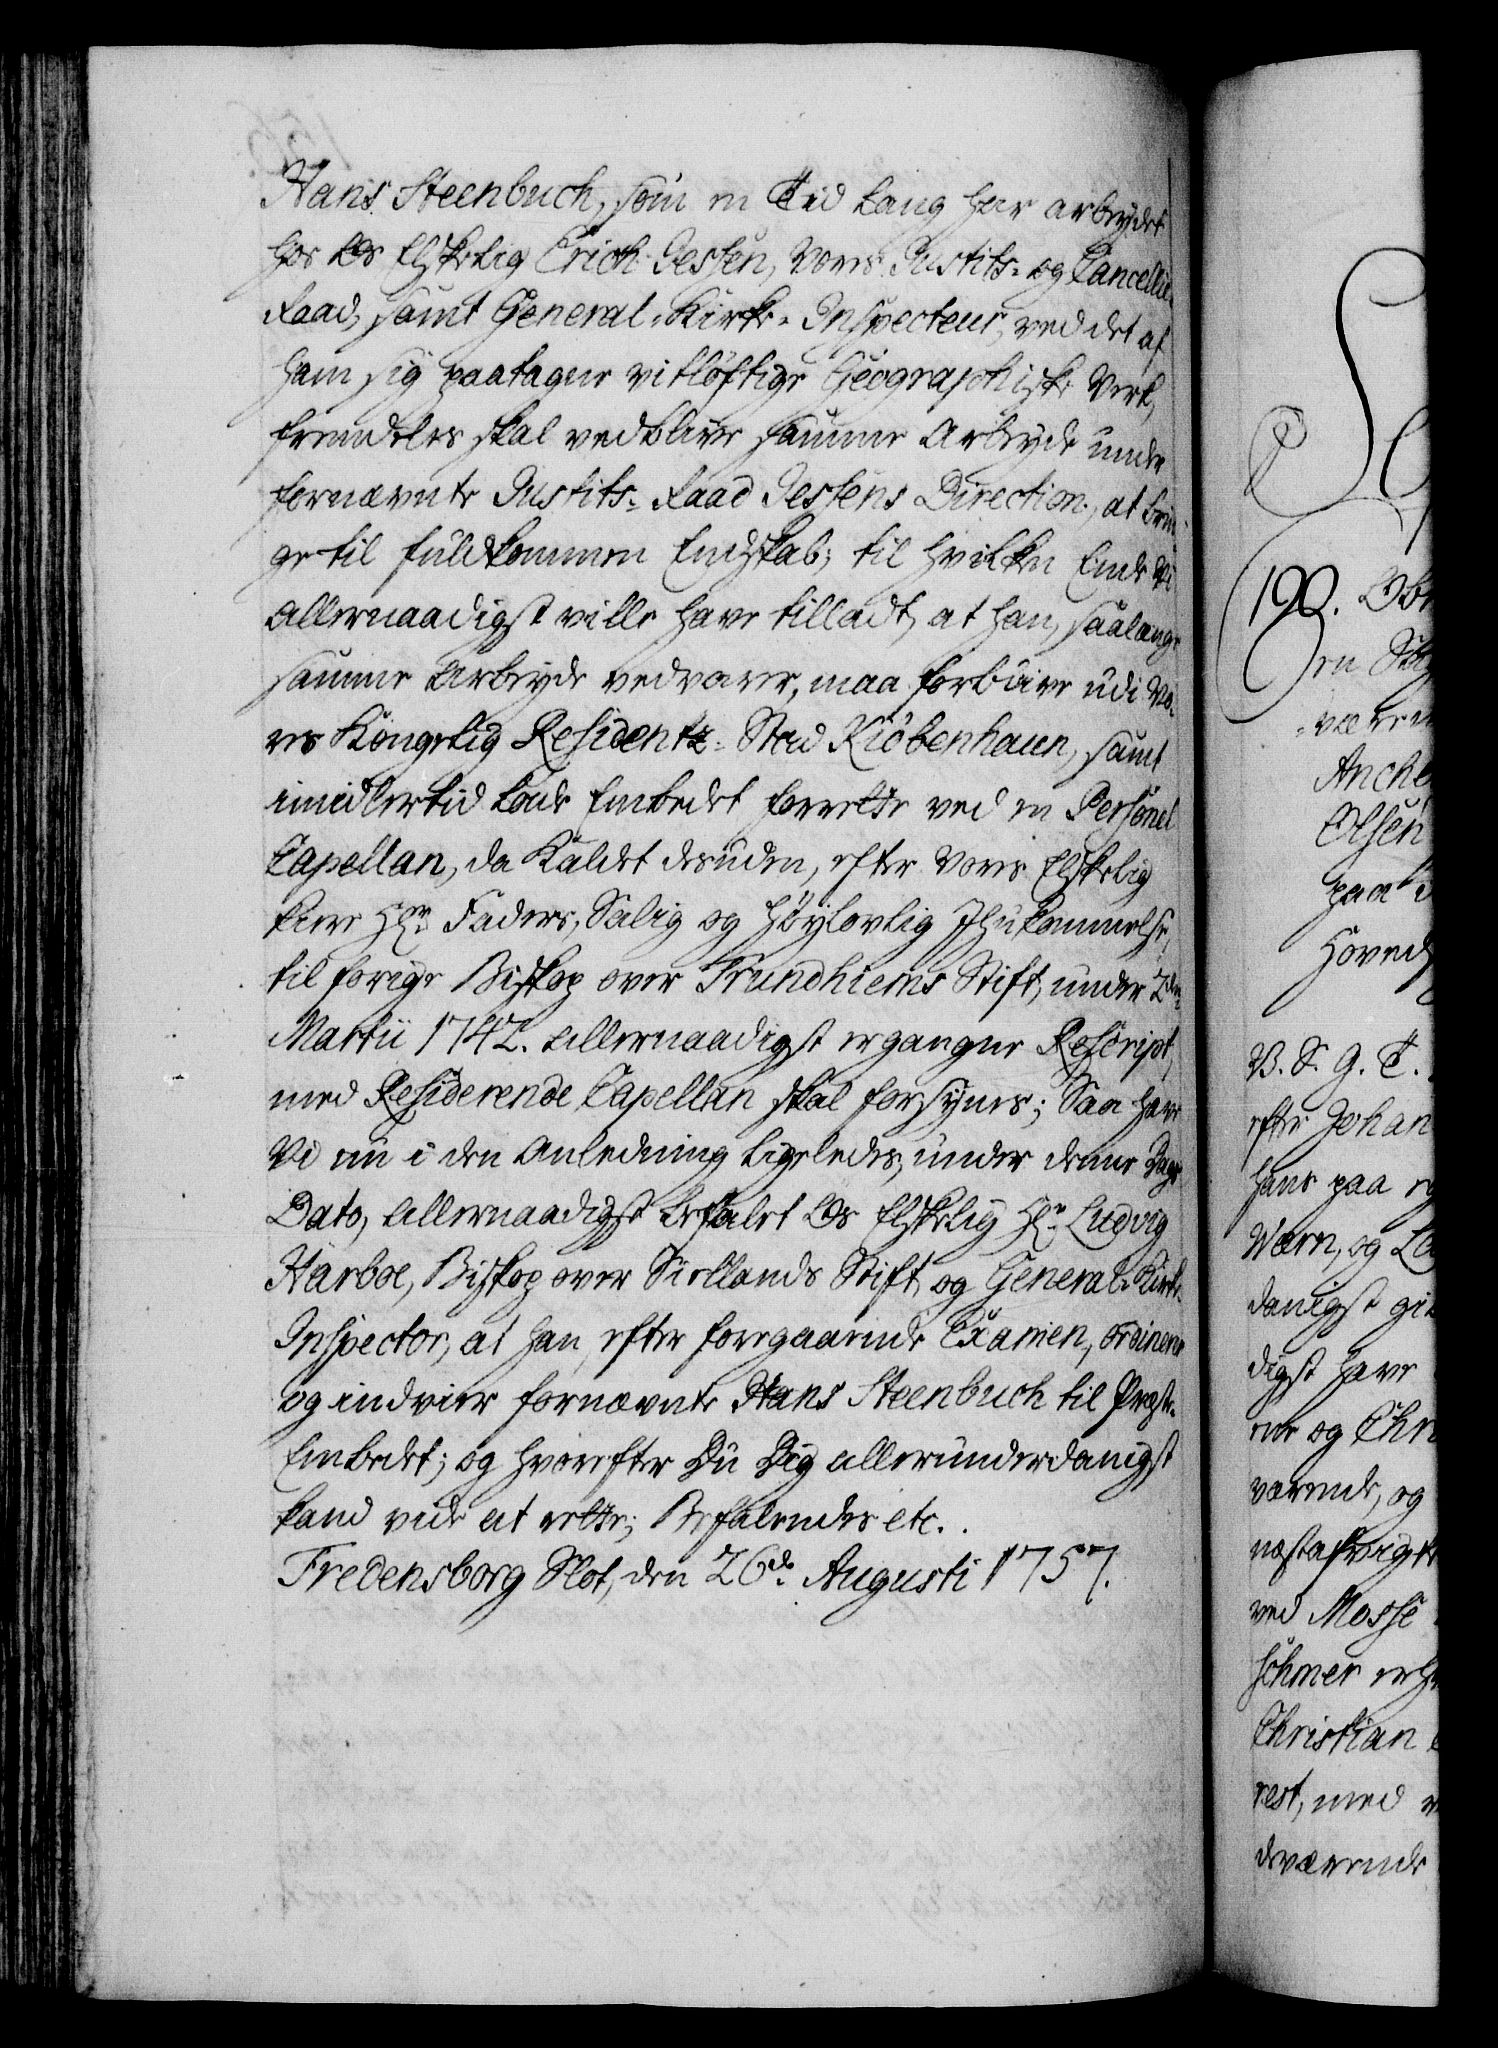 Hans Steenbuch, som en Tid lang har arbeydet
hos Os Elskelig Erich Jessen, Vores Justits- og Cancellie-
Raad, samt General-Kirke-Inspecteur, ved det af
ham sig paatagne vitløftige Geographiske Verk,
fremdeles skal vedblive samme Arbeyde under
fornævnte Justits-Raad Jessens Direction, at brin-
ge til fuldkommen Endskab; til hvilken Ende Vi
allernaadigst ville have tilladt, at han, saalænge
samme Arbeyde vedvarer, maa forblive udi Vo-
res Kongelig Residentz-Stad Kiøbenhaun, samt
imidlertid lade Embedet forrette ved en Personel
Capellan, da Kaldet desuden, efter Vores Elskelig
kiere Hr. Faders, Salig og Høylovlig Ihukommelse,
til forige Biskop over Trundhiems Stift, under 2den
Martii 1742. allernaadigst ergangne Rescript,
med Residerende Capellan skal forsynes; Saa have
Vi nu i den Anledning ligeledes, under denne Dags
Dato, allernaadigst befalet Os Elskelig Hr. Ludvig
Harboe, Biskop over Siellands Stift og General-Kirke-
Inspector, at han, efter foregaaende Examen, ordinerer
og indvier fornævnte Hans Steenbuch til Præste-
Embedet; og hvorefter Du Dig allerunderdanigst
kand vide at rette; Befalendes etc.
Fredensborg Slot, den 26de Augusti 1757.
190.
en
være
Anche
Olsen
paa
Hoved
V. S. G. T.
efter Johan
hans paa
Værn, og
danigst
digst have
ene og Chri
værende, og
ved Mosse
Christian
rest, med
dværende